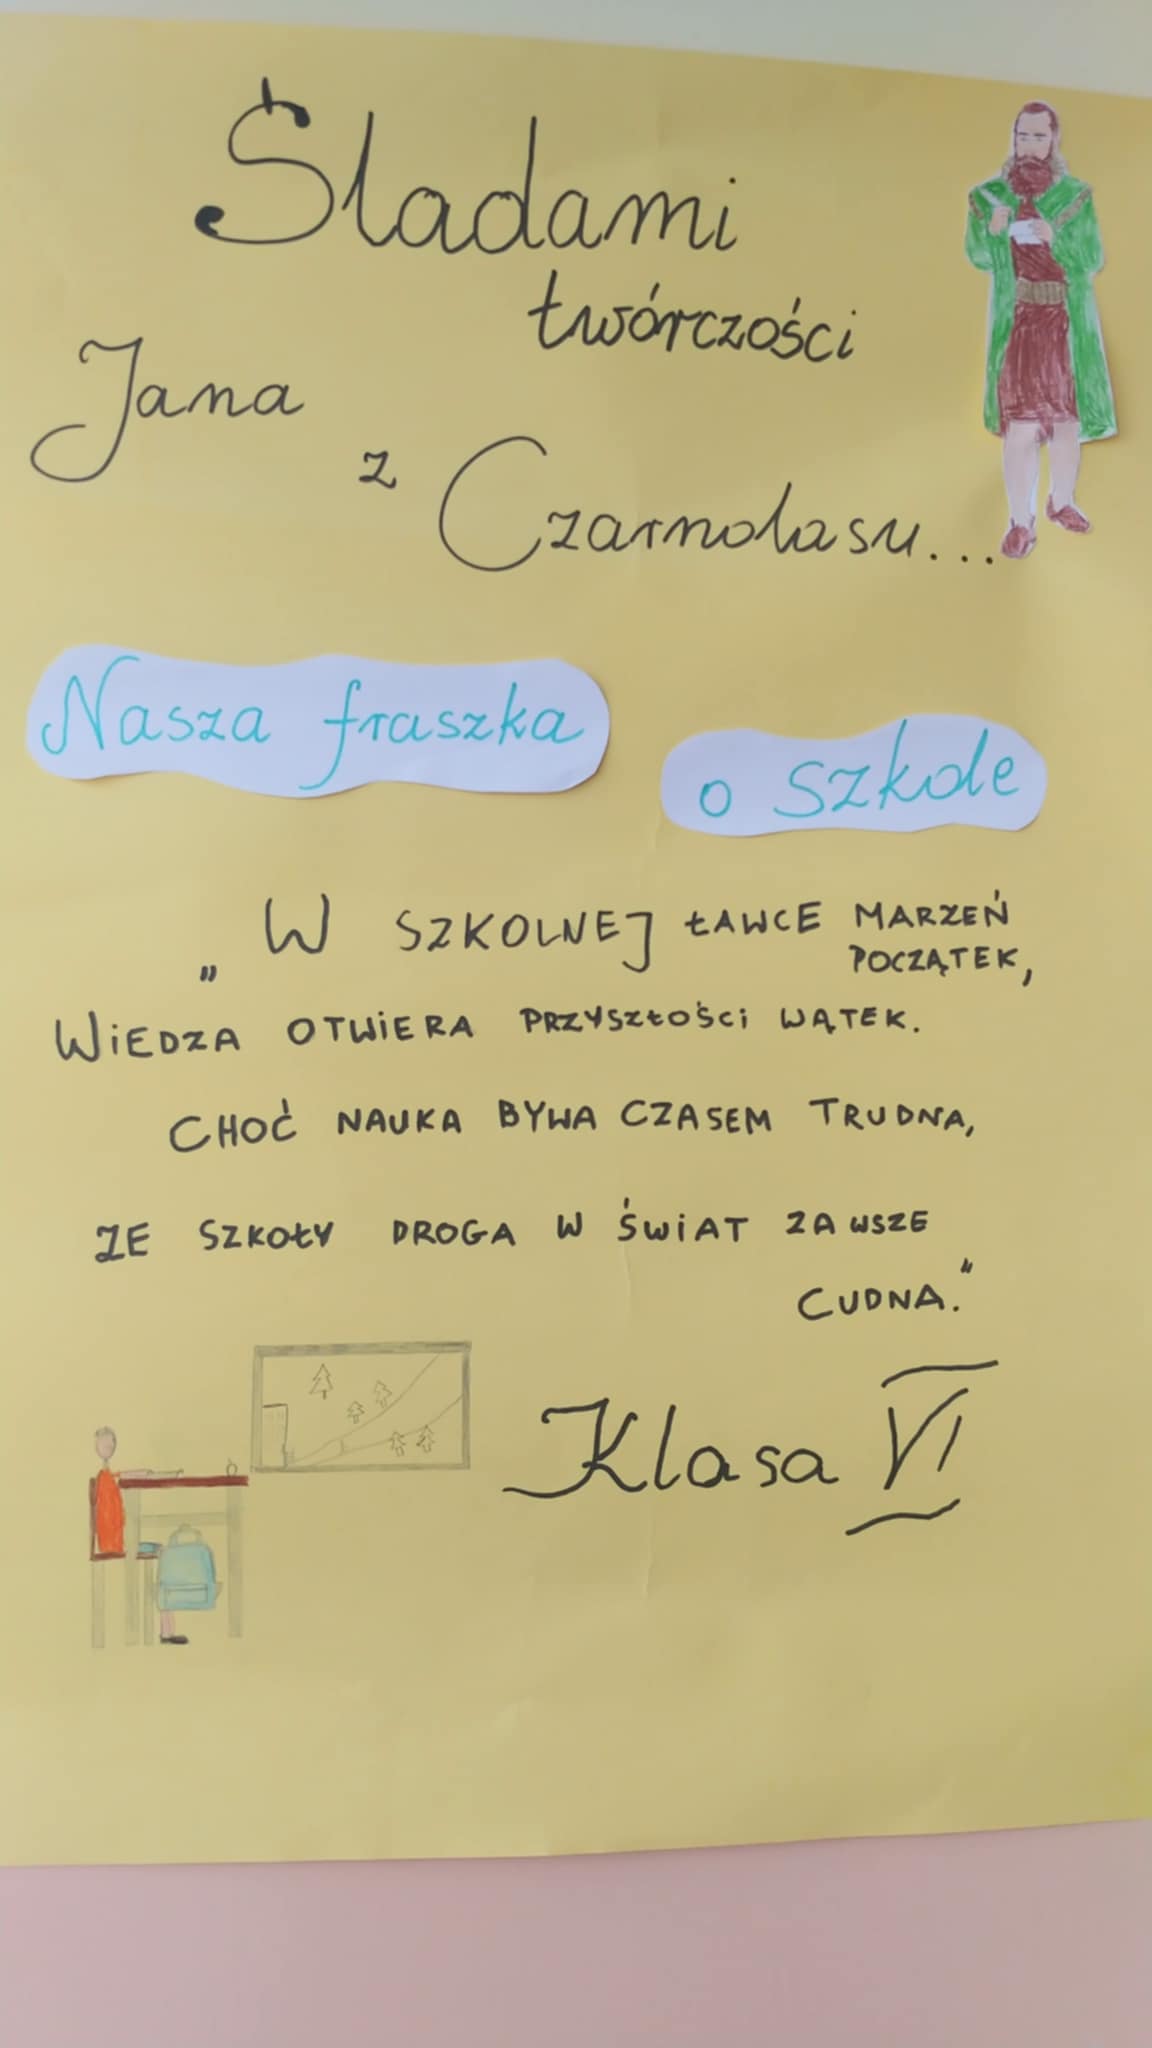 Śladami
twórczości
Jana
z Czarnolasu...
Nasza fraszka
o szkole
„W SZKOLNEJ ŁAWCE MARZEŃ
POCZĄTEK,
WIEDZA OTWIERA PRZYSZŁOŚCI WĄTEK.
CHOĆ NAUKA BYWA CZASEM TRUDNA,
ZE SZKOŁY DROGA W ŚWIAT ZAWSZE
CUDNA."
Klasa VI